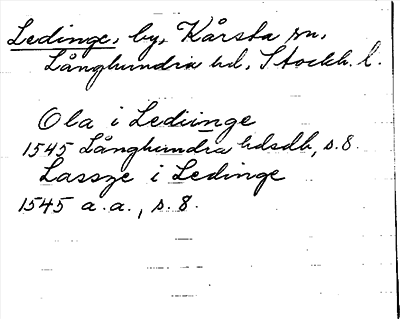 Ledinge, by, Kårsta sn,
Långhundra hd, Stockh. l.
Ola i Lediinge
1545 Långhundra hdsdb, s. 8.
Lassze i Ledinge
1545 a. a., s. 8.